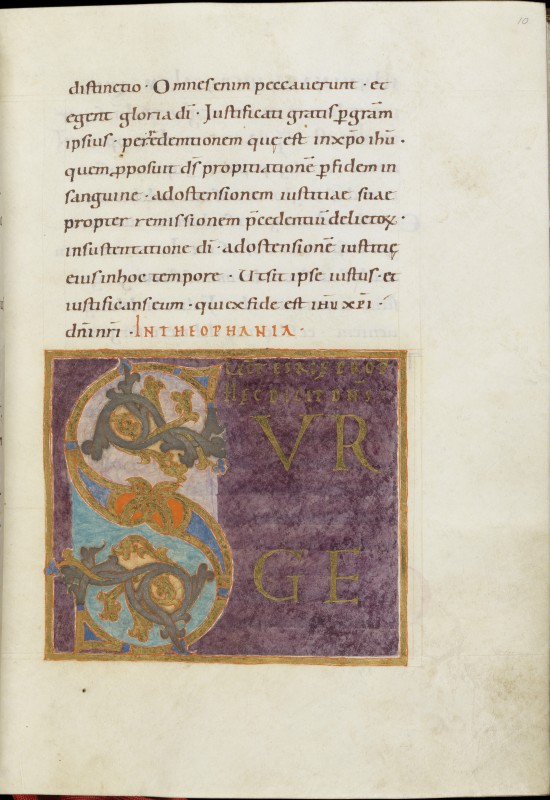 10
distinctio · Omnes enim peccaverunt · et
egent gloria dī · Iustificati gratis p̄ grām
ipsius · per redemtionem quę est in xp̄o ihū ·
quem p̄posuit ds̄ propitiationē p̄ fidem in
sanguine · ad ostensionem iustitiae suae
propter remissionem p̄cedentiū delictoꝝ ·
in sustentatione dī · ad ostensionē iustitię
eius in hoc tempore · Ut sit ipse iustus · et
iustificans eum · qui ex fide est ihū xp̄i ·
dn̄i nr̄i · IN THEOPHANIA ·
HEC DICIT DN̄S
SUR
GE